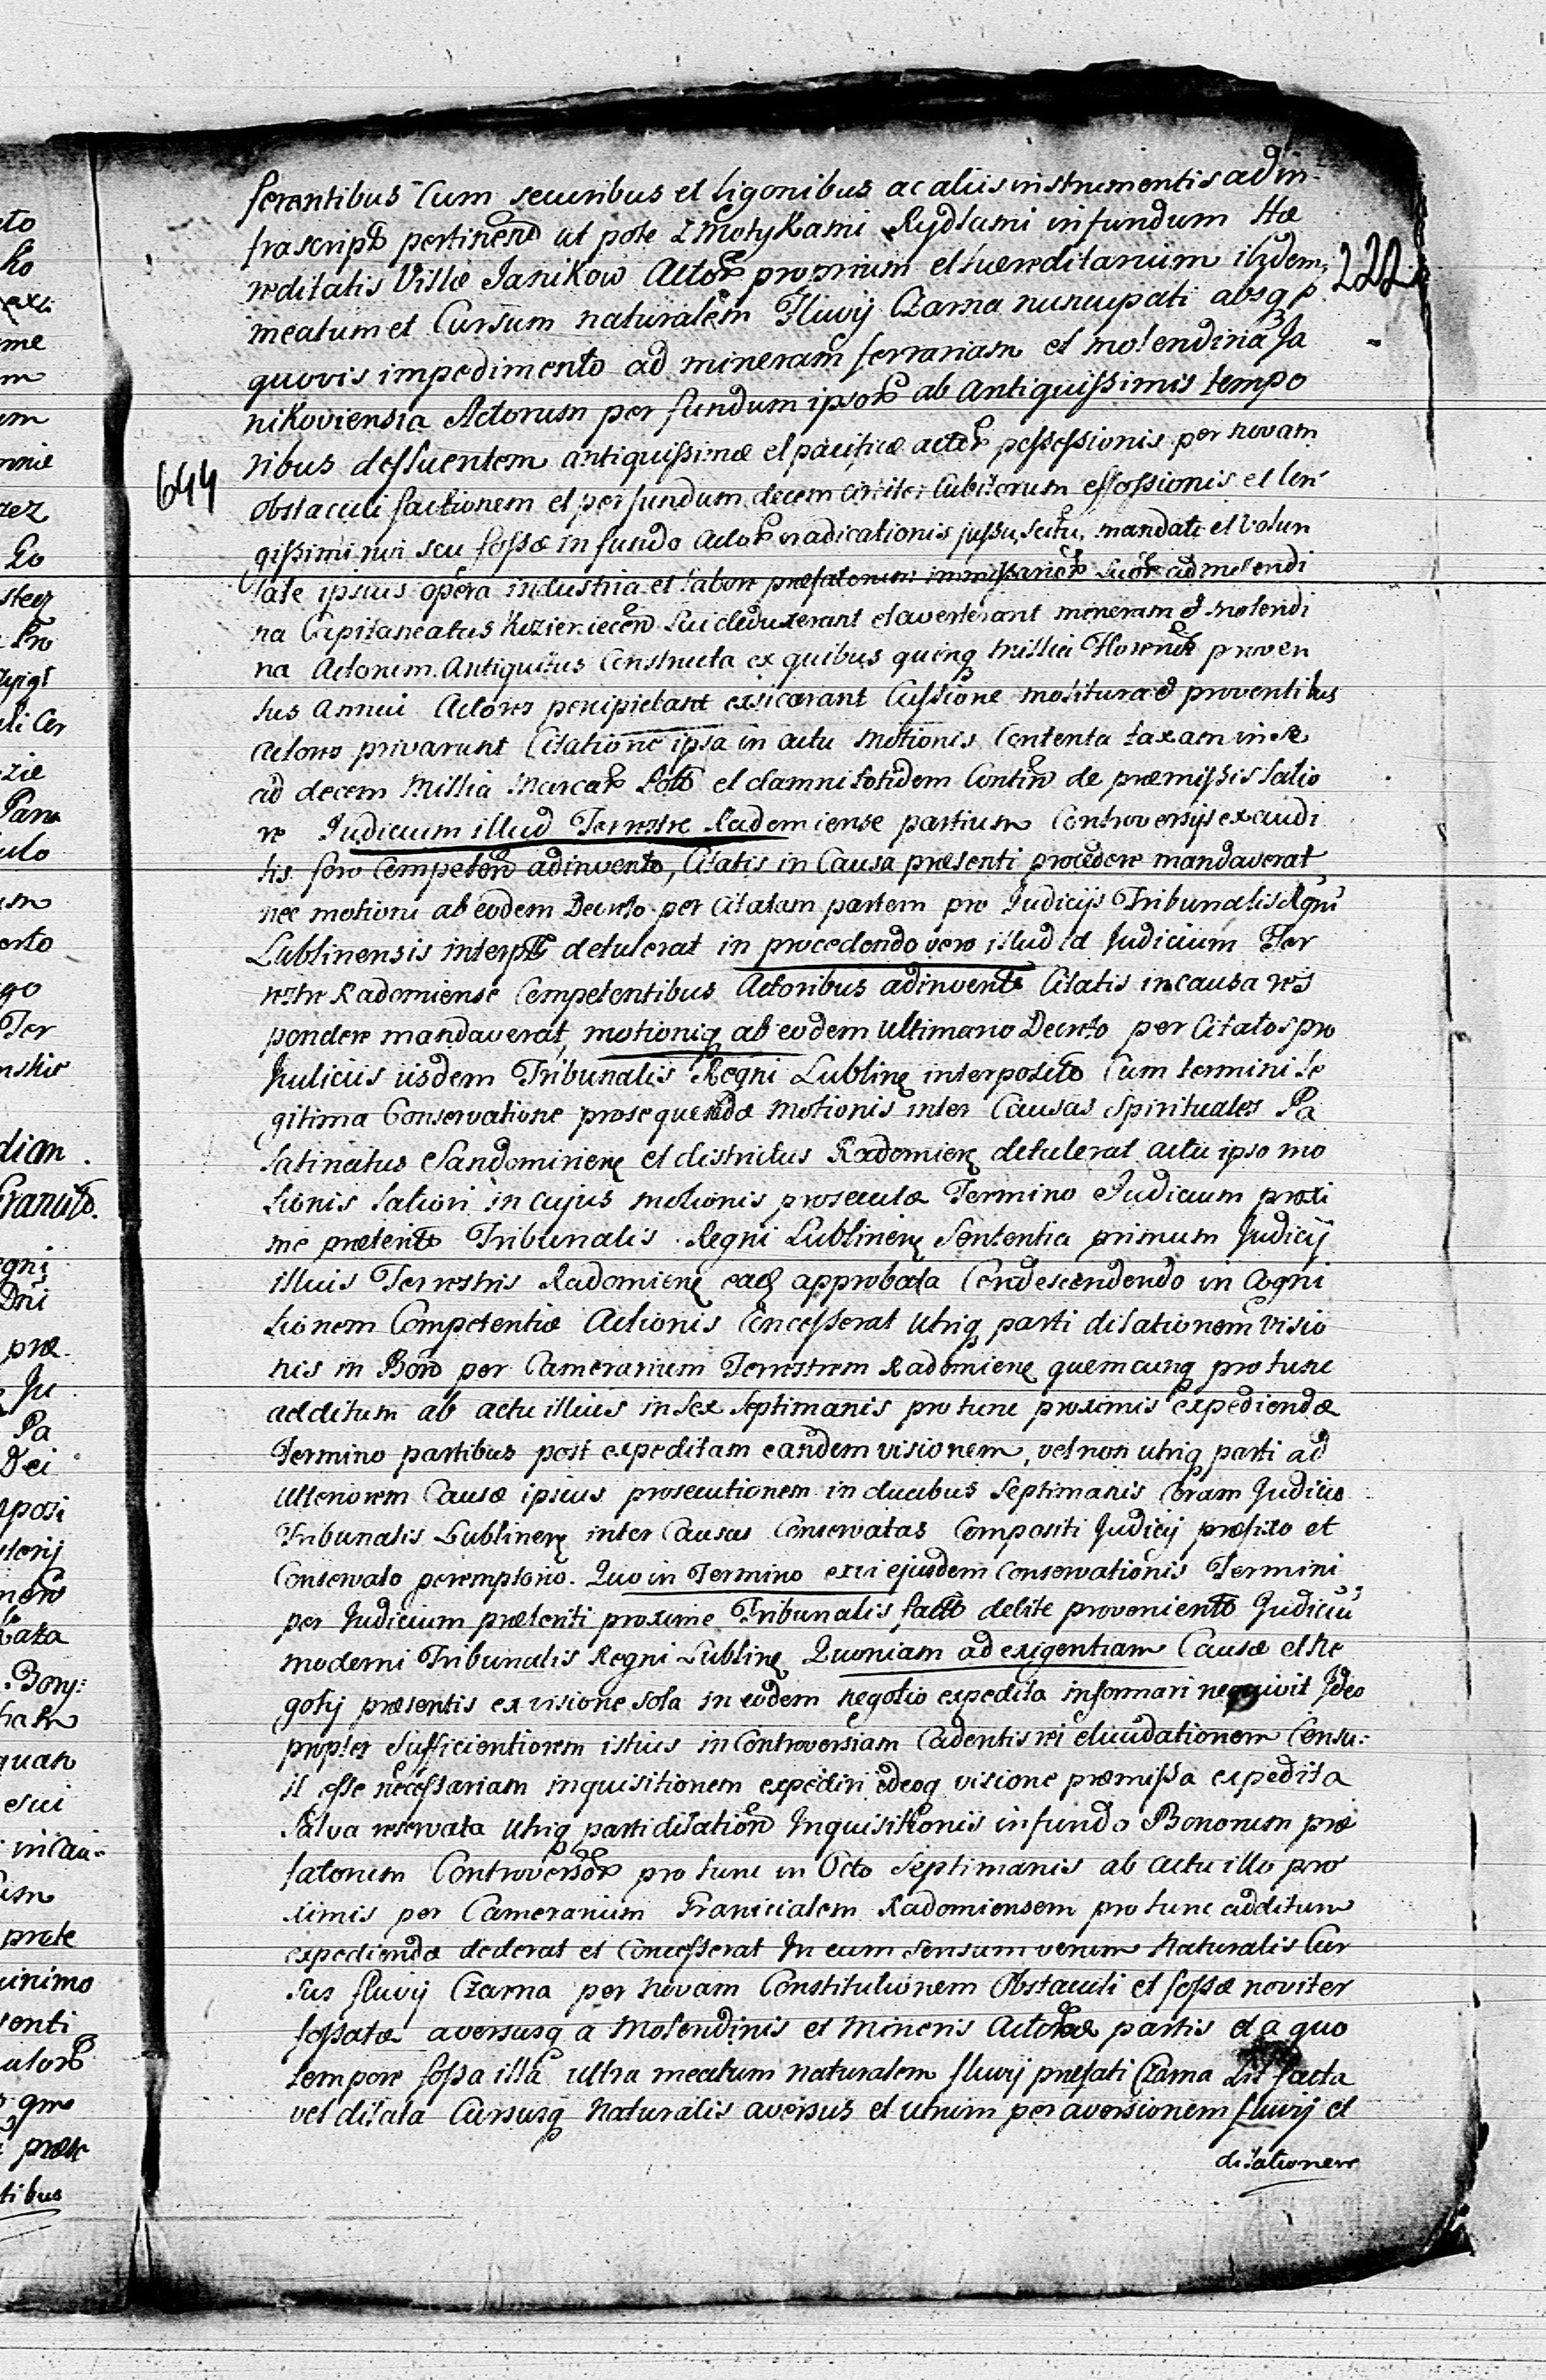 ferentibus Cum securibus et ligonibus ac aliis instrumentis ad in
frascript pertinen ut pote z Motykami Rydlami in fundum Hæ
reditatis Villæ Janikow Actor proprium et hæreditarium ibidem,
222
meatum et Cursum naturalem Fluvij Czarna nuncupati absq
quovis impedimento ad mineram ferrariam et molendina Ja
nikoviensia Actorum per fundum ipsor ab Antiquißimis tempo
ribus defluentem antiquißimæ et pacificæ actor poßeßionis per novam
644
Obstaculi factionem et per fundum decem circiter Cubitorum effoßionis et lon
gißimi rivi seu foßæ in fundo Actor eradicationis jußu, scitu, mandato et Volun
tate ipsius opera industria et labore præfatorum immißarior suor ad molendi
na Capitaneatus Kozienicen Sui deduxerant et averterant mineram et molendi
na Actorum Antiquitus Constructa ex quibus quinq Millia Floren proven
tus Annui Actores percipiebant exsicarant Cußione molitura et proventibus
actores privarunt Citatione ipsa in actu Motionis Contenta taxam in se
ad decem Millia Marcar Polo et damni totidem Contin de præmißis latio
re Judicium illud Terrestre Radomiense partium Controversijs exaudi
tis foro Competen adinvento, Citatis in Causa præsenti procedere mandaverat
nec motioni ab eodem Decreto per Citatam partem pro Judicijs Tribunalis Regni
Lublinensis interp detulerat in procedendo vero illud id Judicium Ter
restre Radomiense Competentibus Actoribus adinvent Citatis in causa res
pondere mandaverat, motioniq ab eodem Ultimario Decreto per Citatos pro
Judiciis iisdem Tribunalis Regni Lublin interposito Cum termini le
gitima Conservatione prosequendæ Motionis inter Causas Spirituales Pa
latinatus Sandomirien et districtus Radomien detulerat actu ipso mo
tionis latiori in cujus motionis prosecutæ Termino Judicium proxi
me præterit Tribunalis Regni Lublinen Sententia primum Judicij
illius Terrestris Radomien ead approbata Condescendendo in Cogni
tionem Competentiæ Actionis Conceßerat Utriq parti dilationem Visio
nis in Bon per Camerarium Terrestrem Radomien quemcunq pro tunc
additum ab actu illius in sex Septimanis pro tunc proximis expediendæ
Termino partibus post expeditam eandem visionem, vel non utriq parti ad
Ulteriorem Causæ ipsius prosecutionem in duabus Septimanis Coram Judicio
Tribunalis Lublinen inter Causas Conservatas Compositi Judicij præfixo et
Conservato peremptorio. Quo in Termino ex vi ejusdem Conservationis Termini
per Judicium præteriti proxime Tribunalis fact delite provenient Judiciu
moderni Tribunalis Regni Lublin Quoniam ad exigentiam Causæ et Ne
gotij præsentis ex visione sola in eodem negotio expedita informari nequivit Ideo
propter Sufficientiorem istius in Controversiam Cadentis rei elucidationem Censu:
it eße neceßariam inquisitionem expediri ideoq visione præmißa expedita
Salva reservata Utriq parti dilation Inquisitionis in fundo Bonorum præ
fatorum Controversor pro tunc in Octo Septimanis ab actu illo pro
ximis per Camerarium Granicialem Radomiensem pro tunc additum
expediendæ dederat et Conceßerat In eum sensum verum Naturalis Cur
sus fluvij Czarna per Novam Constitutionem Obstaculi et foßæ noviter
foßatæ aversusq a Molendinis et Mineris Actoreæ partis et a quo
tempore foßa illa ultra meatum naturalem fluvij præfati Czarna sit facta
vel dilata Cursusq Naturalis aversus et utrum per aversionem fluvij et
dilationem